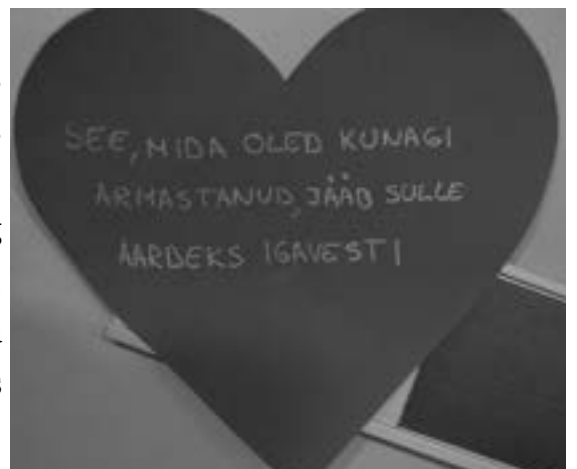 SEE, MIDA OLED KUNAGI
ARMASTANUD, JÄÄB SULLE
AARDEKS IGAVESTI